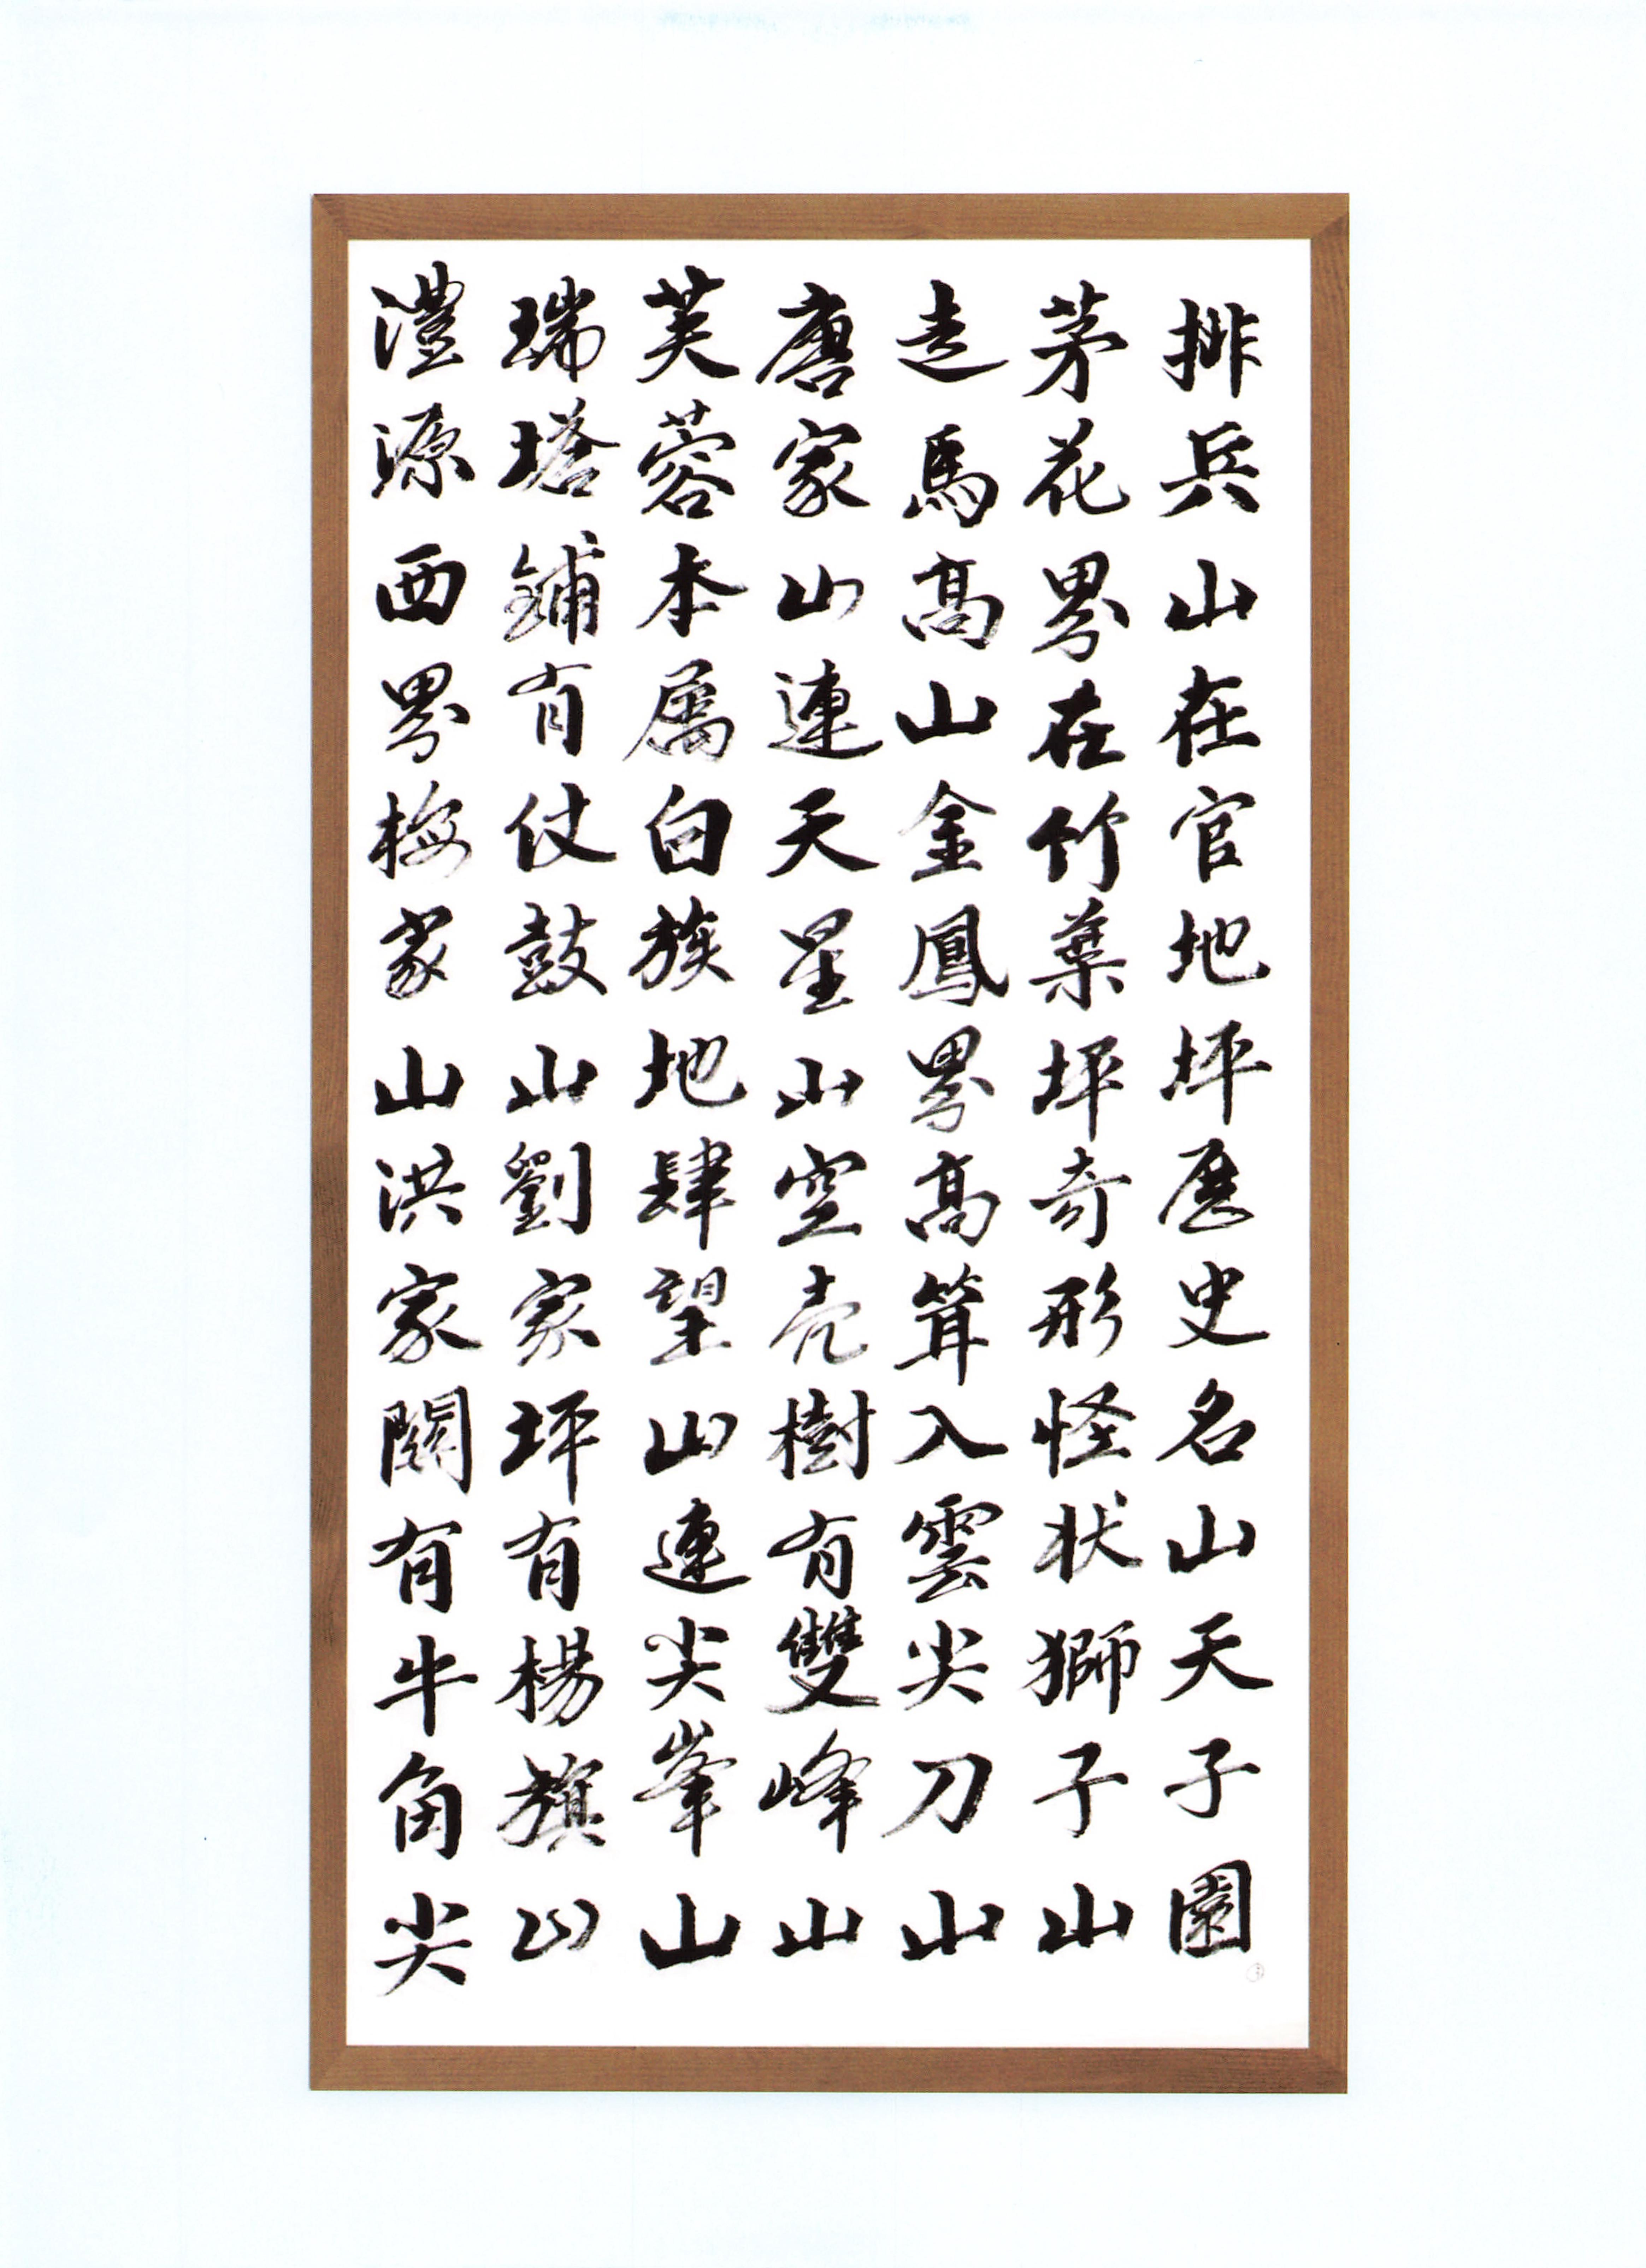 排兵山在官地坪歷史名山天子園
茅花界在竹葉坪奇形怪状獅子山
走馬高山金鳳界高聳入雲尖刀山
唐家山連天星山空壳樹有雙峰山
芙蓉本属白族地肆望山連尖峯山
瑞塔鋪有仗鼓山劉家坪有楊旗山
澧源西界梅家山洪家關有牛角尖